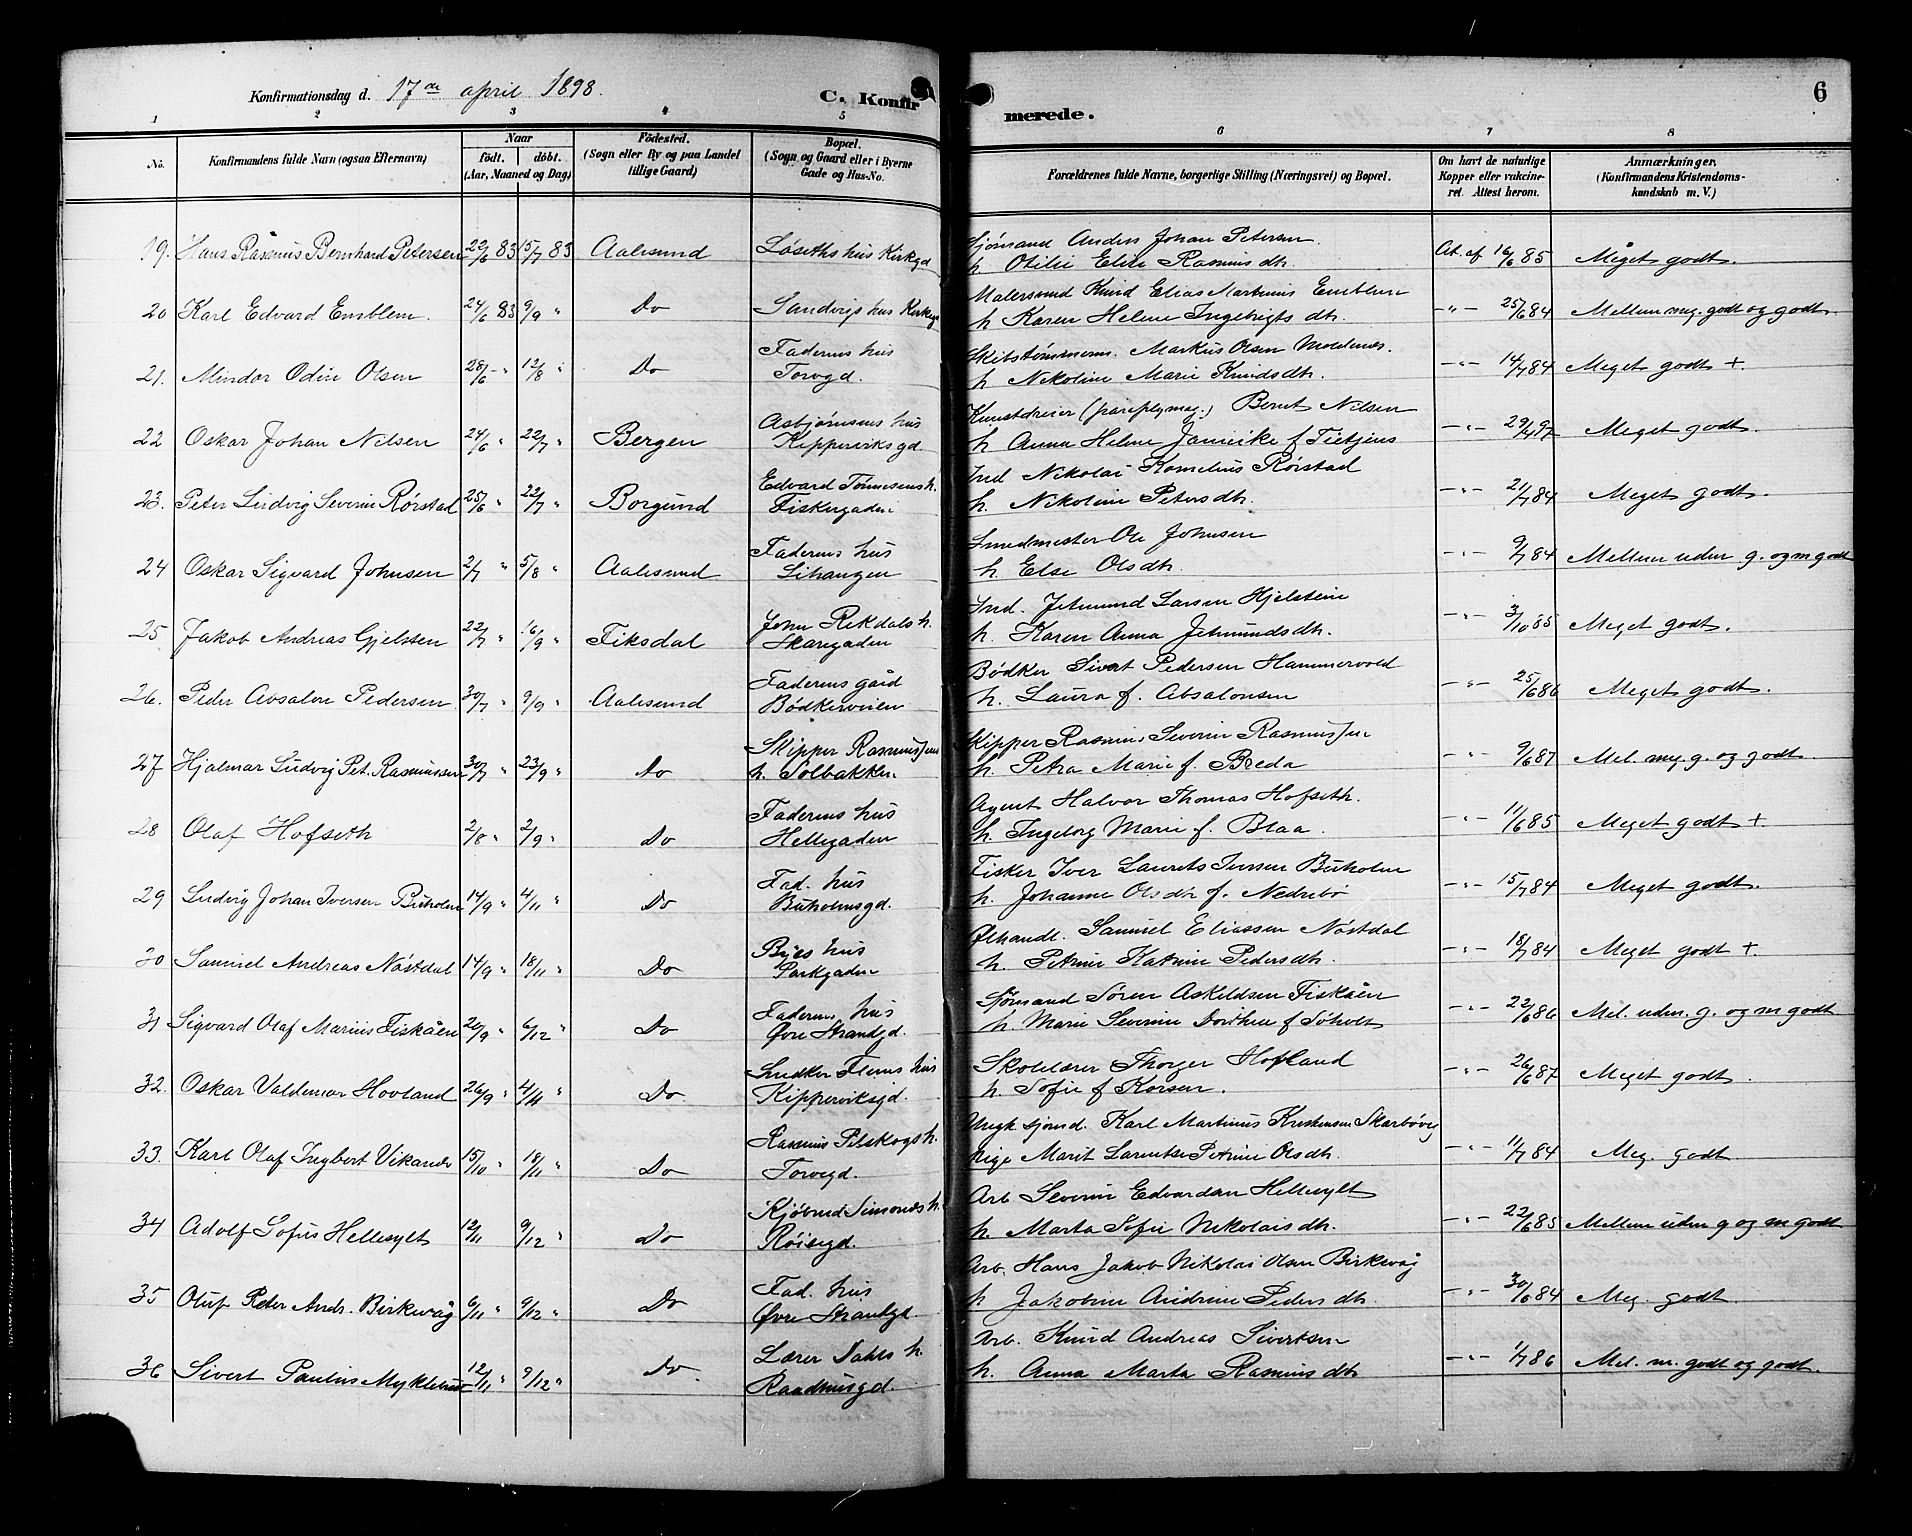 Konfirmationsdag d. 17de april 1898. C. Konfir merede. 6
1 2 3 4 5 6 7 8
No. Konfirmandens fulde Navn (ogsaa Efternavn) Naar født. døbt. (Aar, Maaned og Dag) Fødested. (Sogn eller By og paa Landet tillige Gaard) Bopæl. (Sogn og Gaard eller i Byerne Gade og Hus-No. Forældrenes fulde Navne, borgerlige Stilling (Næringsvei) og Bopæl. Om havt de naturlige Kopper eller vakcineret. Attest herom. Anmærkninger, (Konfirmandens Kristendomskundskab m. V.)
19. Hans Rasmus Bernhard Petersen 22/6 83 15/7 83 Aalesund Løseths hus Kirkgd Sjømand Anders Johan Petersen.
h. Otilie Elise Rasmusdtr. At. af 16/6 85 Meget godt.
20 Karl Edvard Emblem. 24/6 83 9/9 " Do Sandvigs hus Kirkegd Malersvend Knud Elias Martinius Emblem
h. Karen Helene Ingebrigts dtr. -"- 25/6 84 Mellem meg. godt og godt.
21. Mindor Odin Olsen 28/6 - " 12/8 " Do Faderens hus
Torvgd. Skibstømmerm. Markus Olsen Moldenæs.
h. Nikoline Marie Knudsdtr. -"- 14/7 84 Meget godt +.
22 Oskar Johan Nilsen 24/6 " 22/7 " Bergen Asbjørnsens hus
Kipperviksgd Kunstdreier (paraplymag.) Bernt Nilsen
h. Anna Helene Jannike f. Tietjens -"- 29/4 97 Meget godt.
23. Peter Ludvig Severin Rørstad 25/6 " 22/7 " Borgund Edvard Tønnesens h.
Fiskergaden Ind Nikolai Kornelius Rørstad
h. Nikoline Petersdtr. -"- 21/7 84 Meget godt.
24 Oskar Sigvard Johnsen 2/7 " 5/8 " Aalesund Faderens hus
Lihaugen Smedmester Ole Johnsen
h. Else Olsdtr. -"- 9/7 84 Mellem uden g. og m godt
25 Jakob Andreas Gjelsten 22/7 " 16/9 " Fiksdal John Rekdals h.
Skaregaden Ind. Jetmund Larsen Hjelstein
h. Karen Anna Jetmundsdtr. -"- 3/10 85 Meget godt.
26. Peder Absalon Pedersen 30/7 " 9/9 " Aalesund Faderens gård
Bødkerveien Bødker Sivert Pedersen Hammervold
h. Laura f. Absalonsen -"- 25/6 86 Meget godt.
27 Hjalmar Ludvig Pet. Rasmussen 30/7 " 23/9 " Do Skipper Rasmussens
h. Solbakken Skipper Rasmus Severin Rasmussen
h. Petra Marie f. Breda -"- 9/6 87 Mel. meg. g. og godt.
28 Olaf Hofseth 2/8 " 2/9 " Do Faderens hus
Hellegaden Agent Halvor Thomas Hofseth.
h. Ingeborg Marie f. Blaa. -"- 11/6 85 Meget godt +
29 Ludvig Johan Iversen Buholm 14/9 " 4/11 " Do Fad. hus
Buholmsgd. Fisker Iver Laurits Iversen Buholm
h. Johanne Olsdtr f. Nedrebø -"- 15/7 84 Meget godt.
30 Samuel Andreas Nøstdal 14/9 " 18/11 " Do Byes hus
Parkgaden Ølhandl. Samuel Eliassen Nøstdal
h. Petrine Katrine Pedersdtr. -"- 18/7 84 Meget godt +.
31 Sigvard Olaf Marius Fiskåen 20/9 " 6/12 " Do Faderens hus
Øvre Strandgd. Sjømand Søren Askildsen Fiskåen
h. Marie Severine Dorthea f Søholt -"- 22/6 86 Mel. uden. g. og m godt
32. Oskar Valdemar Hovland 26/9 " 4/11 " Do. Snedker Flems hus
Kipperviksgd. Skolelærer Thorger Hofland
h. Sofie f Korsen. -"- 26/6 87 Meget godt.
33. Karl Olaf Ingbert Vikanes 15/10 " 18/11 " Do Rasmus Pilskogs h.
Torvegd. Ungk. sjømd. Karl Martinus Kristensen Skarbøvig
Pige Marit Laurntse Petrine Olsdtr. -"- 11/7 84 Meg. godt
34 Adolf Sofus Hellesylt 12/11 9/12 " Do Kjøbmd Simonæs h.
Røisegd. Arb. Severin Edvardsen Hellesylt
h. Marta Sofie Nikolais dtr. -"- 22/6 85 Mellem uden g og m godt
35 Oluf Peter Andr. Birkevåg 6/11 " 9/12 " Do Fad. hus
Øvre Strandgd Arb. Hans Jakob Nikolai Olsen Birkevåg
h Jakobine Andrine Peders dtr. -"- 30/6 84 Meg. godt.
36 Sivert Paulus Myklebust 12/11 " 9/12 " Do. Lærer Dahls h.
Raadhusgd. Arb. Knud Andreas Sivertsen
h. Anna Marta Rasmus dtr -"- 1/7 86 Mel. m. godt og godt.